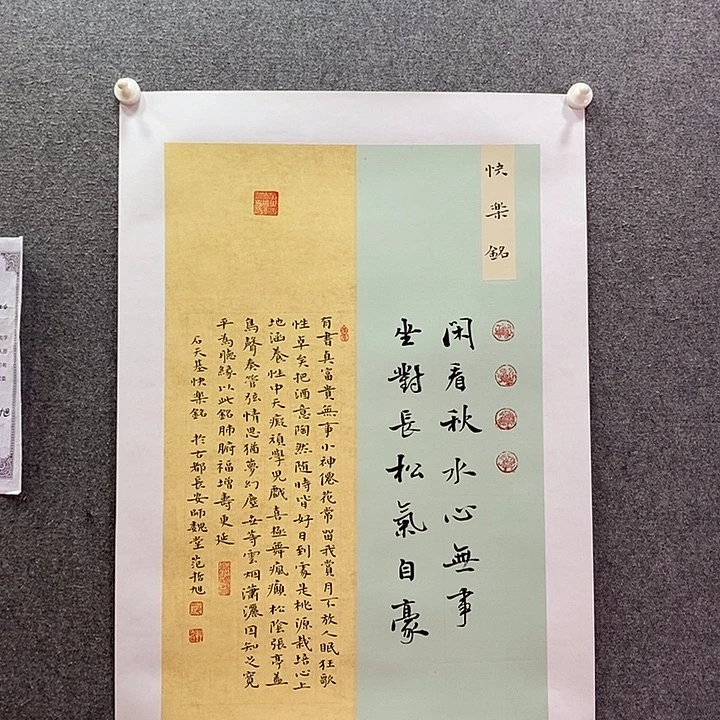 快樂銘
閑看秋水心無事
坐對長松氣自豪
有書真富貴無事小神僊花常留我賞月不放人眠狂歌
性卓矣把酒意陶然随時皆好日到處是桃源栽培心上
地涵養性中天癡頑學兒戲喜極舞瘋癲松陰張亭蓋
鳥聲奏管弦情思猶夢幻塵世等雲烟瀟灑因知之寬
平為緣以此銘肺腑福增壽更延
石天基快樂銘 於古都長安師魏堂 范哲旭